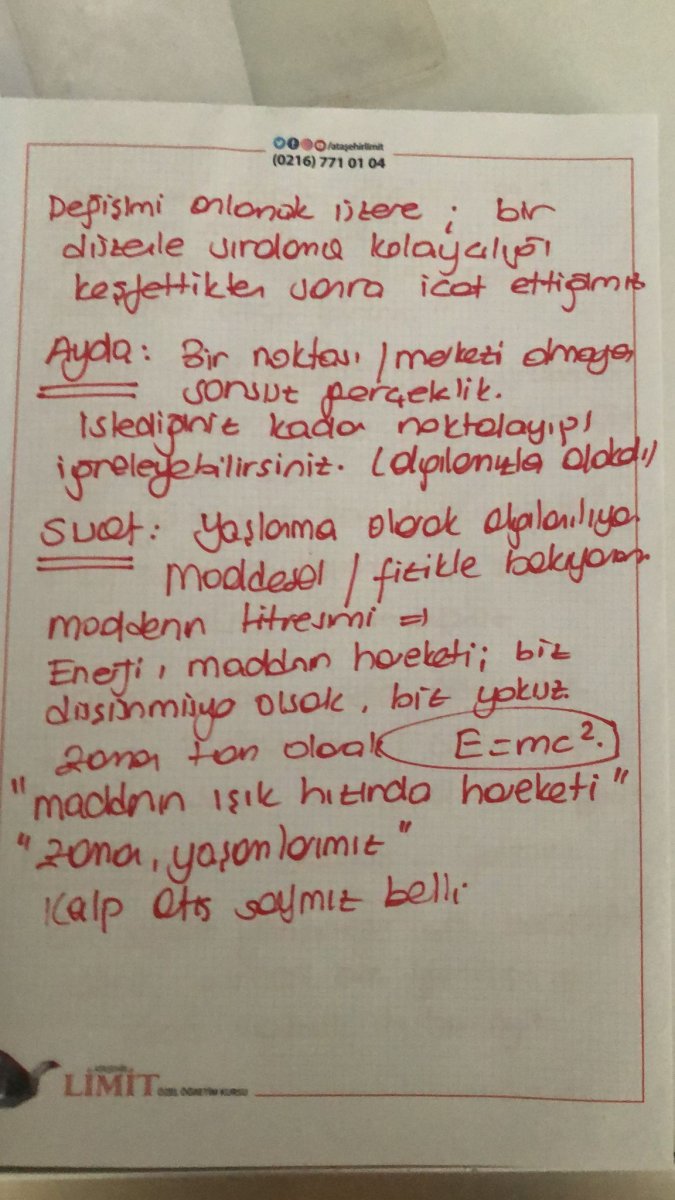 /ataşehirlimit
(0216) 771 01 04
Değişimi anlamak üzere ; bir
düzenle sıralama kolaycılığı
keşfettikten sonra icat ettiğimiz
Ayda : Bir noktası / merkezi olmayan
sonsuz gerçeklik.
istediğiniz kadar noktalayıp
iğneleyebilirsiniz. (algılamızla alakalı)
Suat : Yaşlanma olarak algılanılıyor
Maddesel / fizikle bakıyorum
maddenin titreşimi =>
Enerji, maddenin hareketi; biz
düşünmüyor olsak, biz yokuz.
zaman tam olarak E=mc².
"maddenin ışık hızında hareketi"
"zaman, yaşamlarımız"
Kalp atış sayımız belli.
LİMİT
ÖZEL ÖĞRETİM KURSU